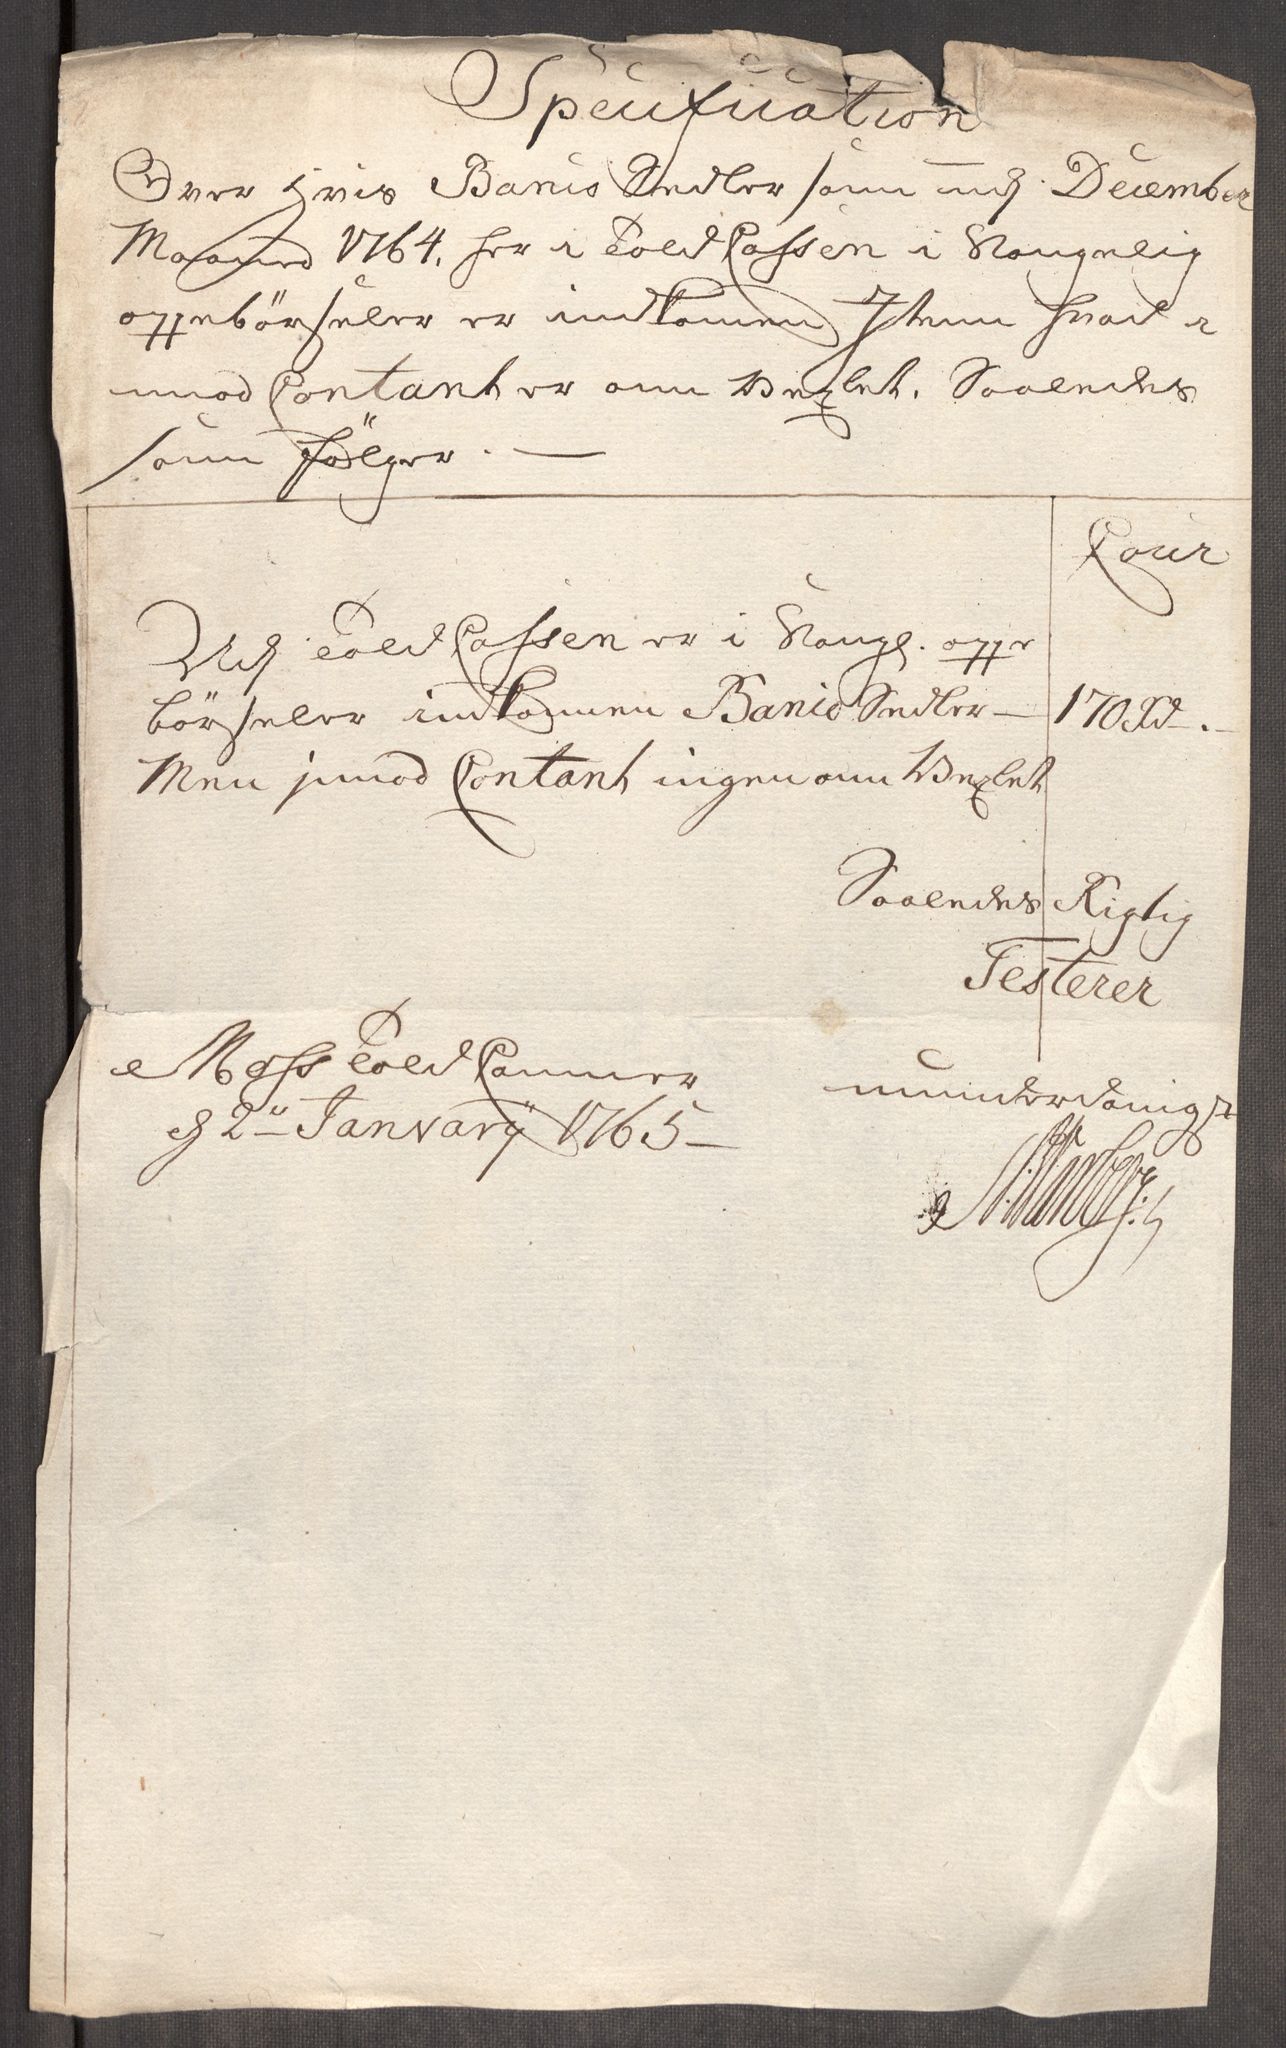 Specification
Over hvis Banco Sedler som udj December
Maaned 1764. her i Told Cassen i Kongelig
oppebörseler er indkomen Item hvad i
mod Contant er om Vexlet. Saaledes
som fölger. —
Cour
Udj Told Cassen er i Kongl. oppe
börseler indkommen Banco Sedler — 170 Rd —.
Men jmod Contant ingen om Vexlet
Saaledes Rigtig
Testerer
Moss Told Cammer
d 2n Januarij 1765 —
underdanigst